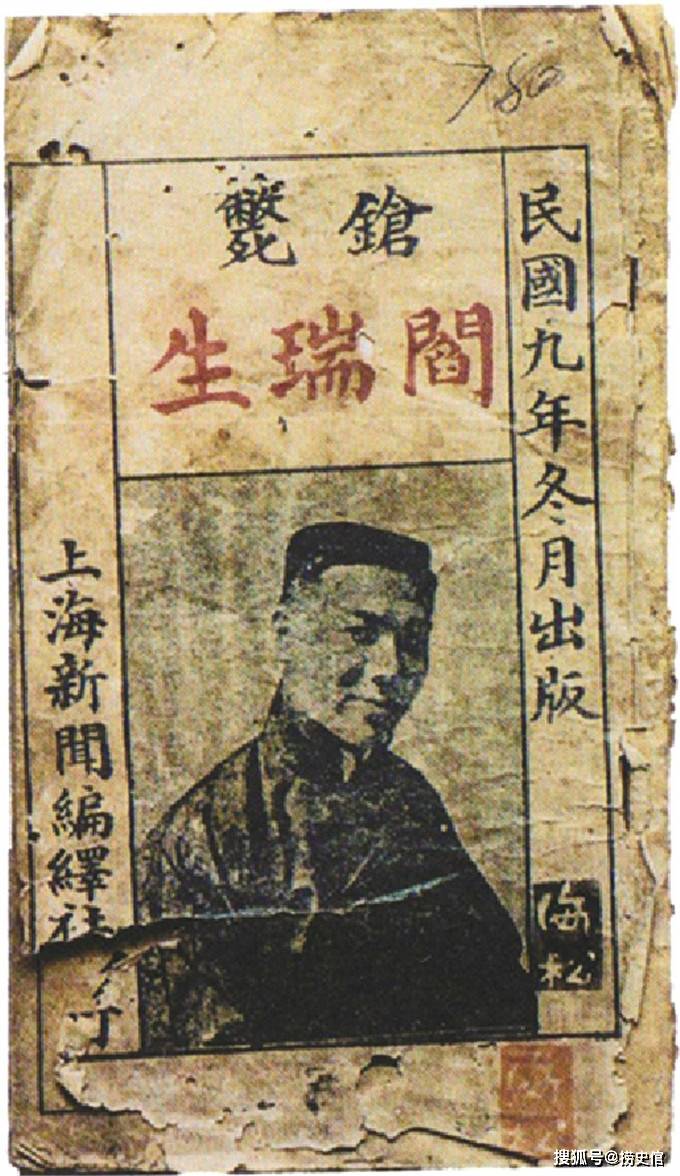 民國九年冬月出版
鎗斃
閻瑞生
上海新聞編繹社
搜狐号@捞史倌